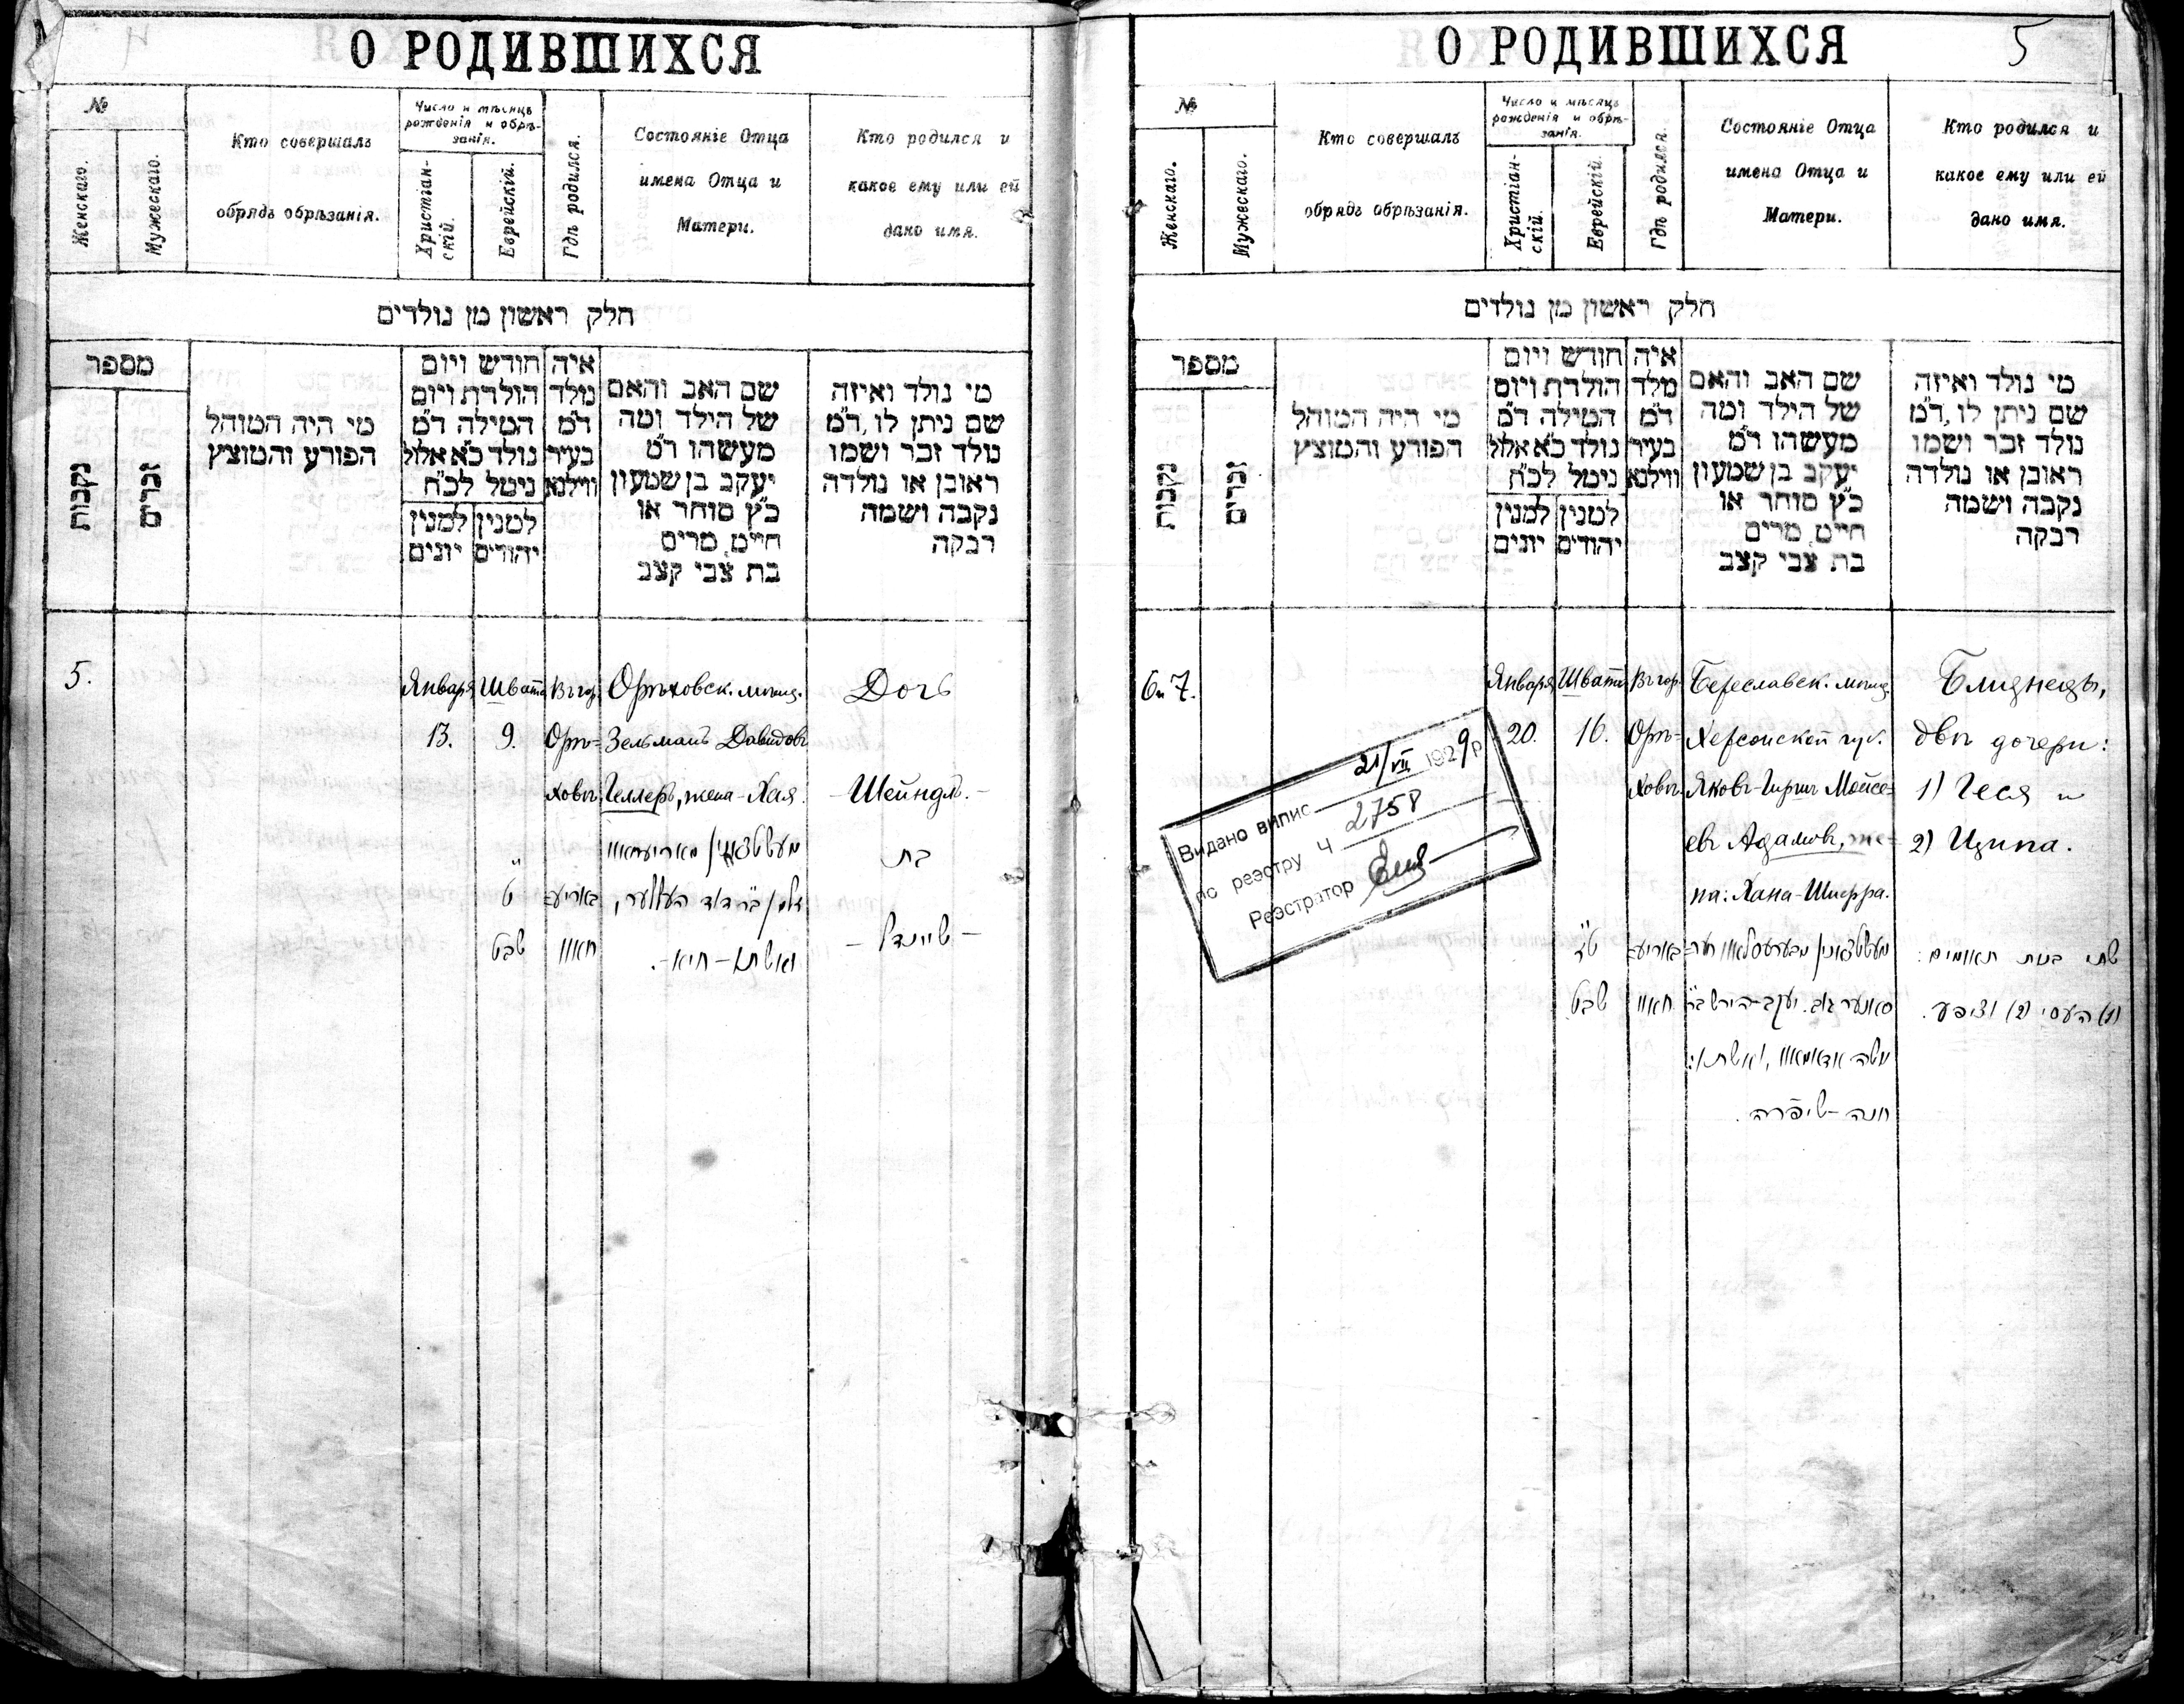 О РОДИВШИХСЯ
№
Женскаго.
Мужескаго.
Кто совершалъ
обрядъ обрѣзанія.
Число и мѣсяцъ
рожденія и обрѣ-
занія.
Христіан-
скій.
Еврейскій.
Гдѣ родился.
Состояніе Отца
имена Отца и
Матери.
Кто родился и
какое ему или ей
дано имя.
חלק ראשון מן נולדים
מספר
נקבות
זכרים
מי היה המוהל
הפורע והמוצץ
חודש ויום
הולדת ויום
המילה ד״מ
נולד כ״א אלול
נימל לכ״ח
למנין
יהודים
למנין
יונים
איה
מלד
ד״מ
בעיר
ווילנא
שם האב והאם
של הילד ומה
מעשהו ד״מ
יעקב בן שמעון
כ״ץ סוחר או
חייט, מרים
בת צבי קצב
מי נולד ואיזה
שם ניתן לו, ד״מ
נולד זכר ושמו
ראובן או נולדה
נקבה ושמה
רבקה
5.
Января
13.
Швата
9.
Въ гор.
Орѣ=
ховѣ.
Орѣховск. мѣщ.
Зельманъ Давидовъ
Геллеръ, жена-Хая.
Дочь
-Шейндль.-
ט׳
שבט
אריע=
חאוו
זלמן ב״ר דוד העללער,
ואשתו - חיא -.
בת
- שיינדל -
О РОДИВШИХСЯ
5
№
Женскаго.
Мужескаго.
Кто совершалъ
обрядъ обрѣзанія.
Число и мѣсяцъ
рожденія и обрѣ-
занія.
Христіан-
скій.
Еврейскій.
Гдѣ родился.
Состояніе Отца
имена Отца и
Матери.
Кто родился и
какое ему или ей
дано имя.
חלק ראשון מן נולדים
מספר
נקבות
זכרים
מי היה המוהל
הפורע והמוצץ
חודש ויום
הולדת ויום
המילה ד״מ
נולד כ״א אלול
נימל לכ״ח
למנין
יהודים
למנין
יונים
איה
מלד
ד״מ
בעיר
ווילנא
שם האב והאם
של הילד ומה
מעשהו ד״מ
יעקב בן שמעון
כ״ץ סוחר או
חייט, מרים
בת צבי קצב
מי נולד ואיזה
שם ניתן לו, ד״מ
נולד זכר ושמו
ראובן או נולדה
נקבה ושמה
רבקה
6 и 7.
Января
20.
Швата
16.
Въ гор.
Орѣ=
ховѣ.
Береславск. мѣщ.
Херсонской губ.
Яковъ-Гиршъ Мойсе=
евъ Адамовъ, же=
на: Хана-Шифра.
Близнецы,
двѣ дочери:
1) Геся и
2) Ципа.
Видано випис 21/VII 1929 р
по реэстру Ч 2758
Реэстратор
ט״ז
שבט
חאוו
יעקב-הירש ב״ר
משה אדאמאוו, ואשתו:
חנה-שיפרה.
שתי בנות תאומים:
(1) העסי (2) ציפע.